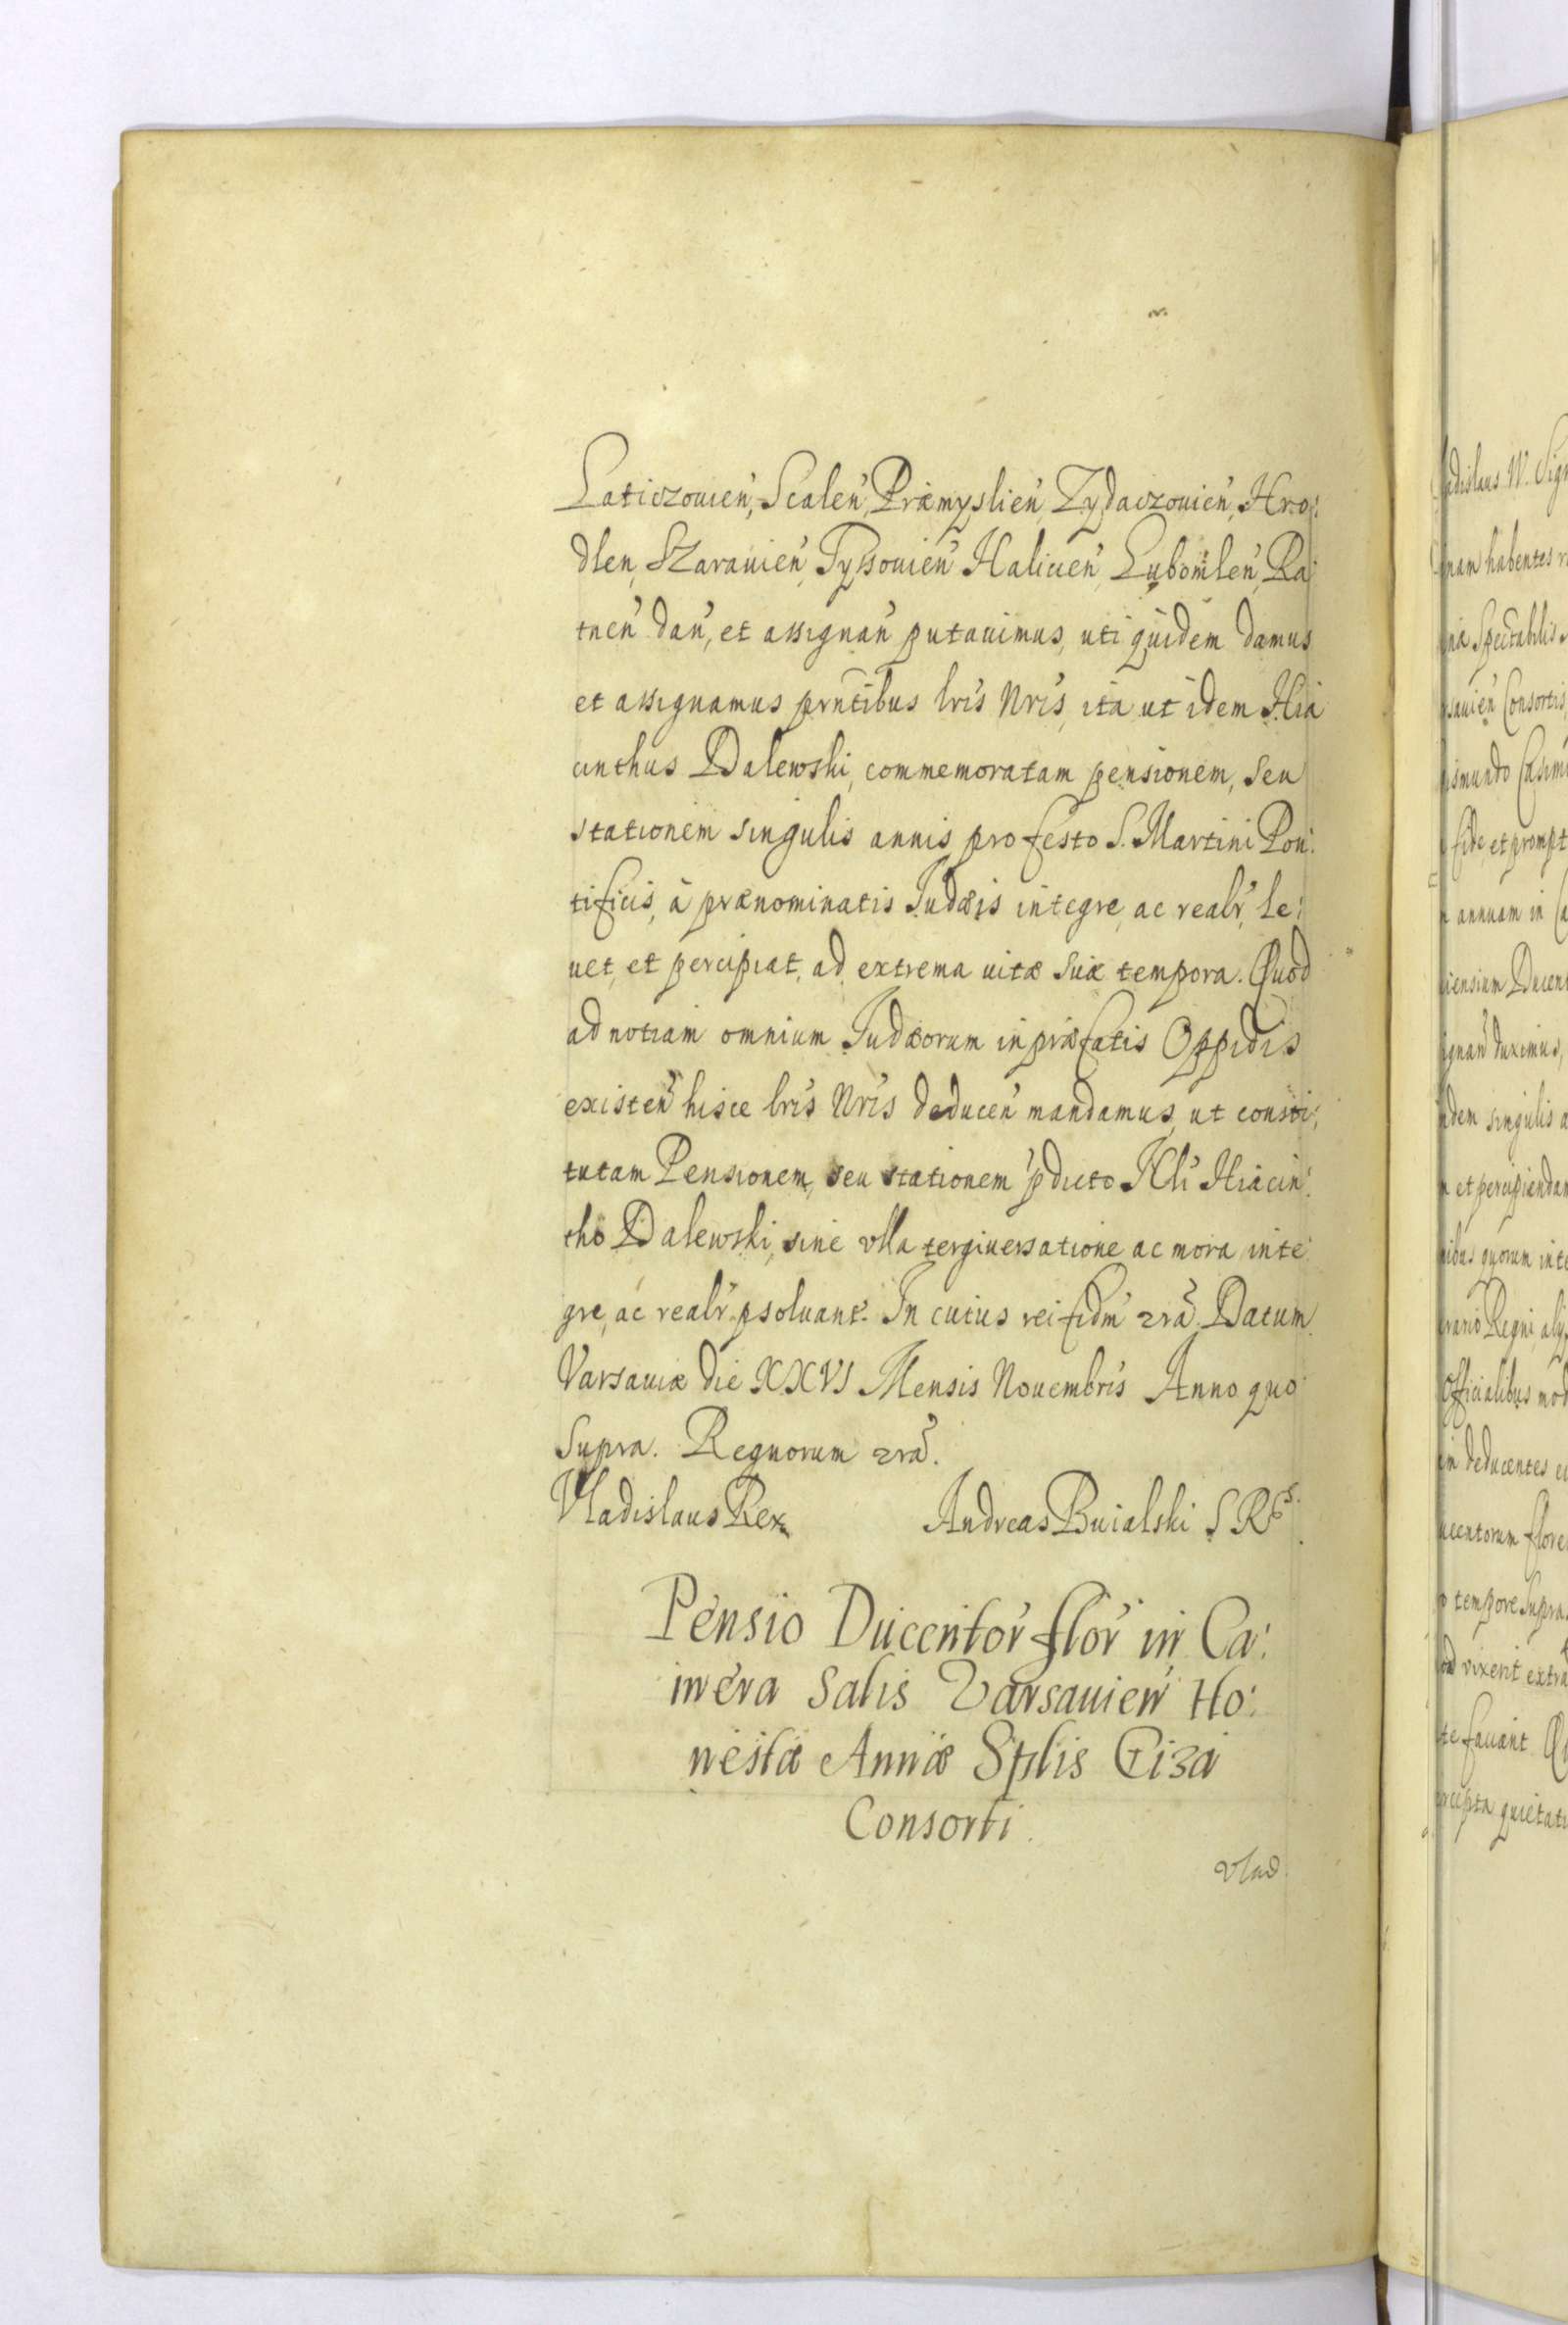 Laticzouien̄, Scalen̄, Præmyslien̄, Zydaczouien̄, Hro:
dlen, Szarauien̄, Tyssouien̄ Halicien̄, Lubomlen̄, Ra
tnen̄ dan̄, et assignan̄ putauimus, uti quidem damus
et assignamus prn̄tibus lrīs Nrīs, ita ut idem Hia
cinthus Dalewski, commemoratam pensionem, seu
stationem singulis annis pro festo S. Martini Pon:
tificis, à prænominatis Judæis integre, ac realr̄, le:
uet, et percipiat, ad extrema uitæ suæ tempora. Quod
ad notiam omnium Judæorum in præfatis Oppidis
existen̄ hisce lrīs Nrīs deducen̄ mandamus, ut consti:
tutam Pensionem, seu stationem p̄dicto Hiacin:
tho Dalewski, sine ulla tergiuersatione ac mora inte:
gre, ac realr̄ psoluant. In cuius rei fidm̄ zrā. Datum
Varsauiæ die XXVI Mensis Nouembris Anno quo
Supra. Regnorum zrā.
Vladislaus Rex Andreas Buialski S R
Pensio Ducentor̄ flor̄ in Ca:
mera Salis Varsauien̄ Ho:
nestæ Annæ Splis Giza
Consorti.
Vlad
ladislaus IV.
nam habentes
Spectabilis
sauien̄ Consortis
ismundo Casimi
fide et prompt
annuam in Ca
iensium Ducent
ignan̄ duximus,
dem singulis a
et percipiendam
ibus quorum inte
rario Regni, alij
Officialibus mod
deducentes
ucentorum flore
tempore supra
vixerit extra
faciant
cepta quietati